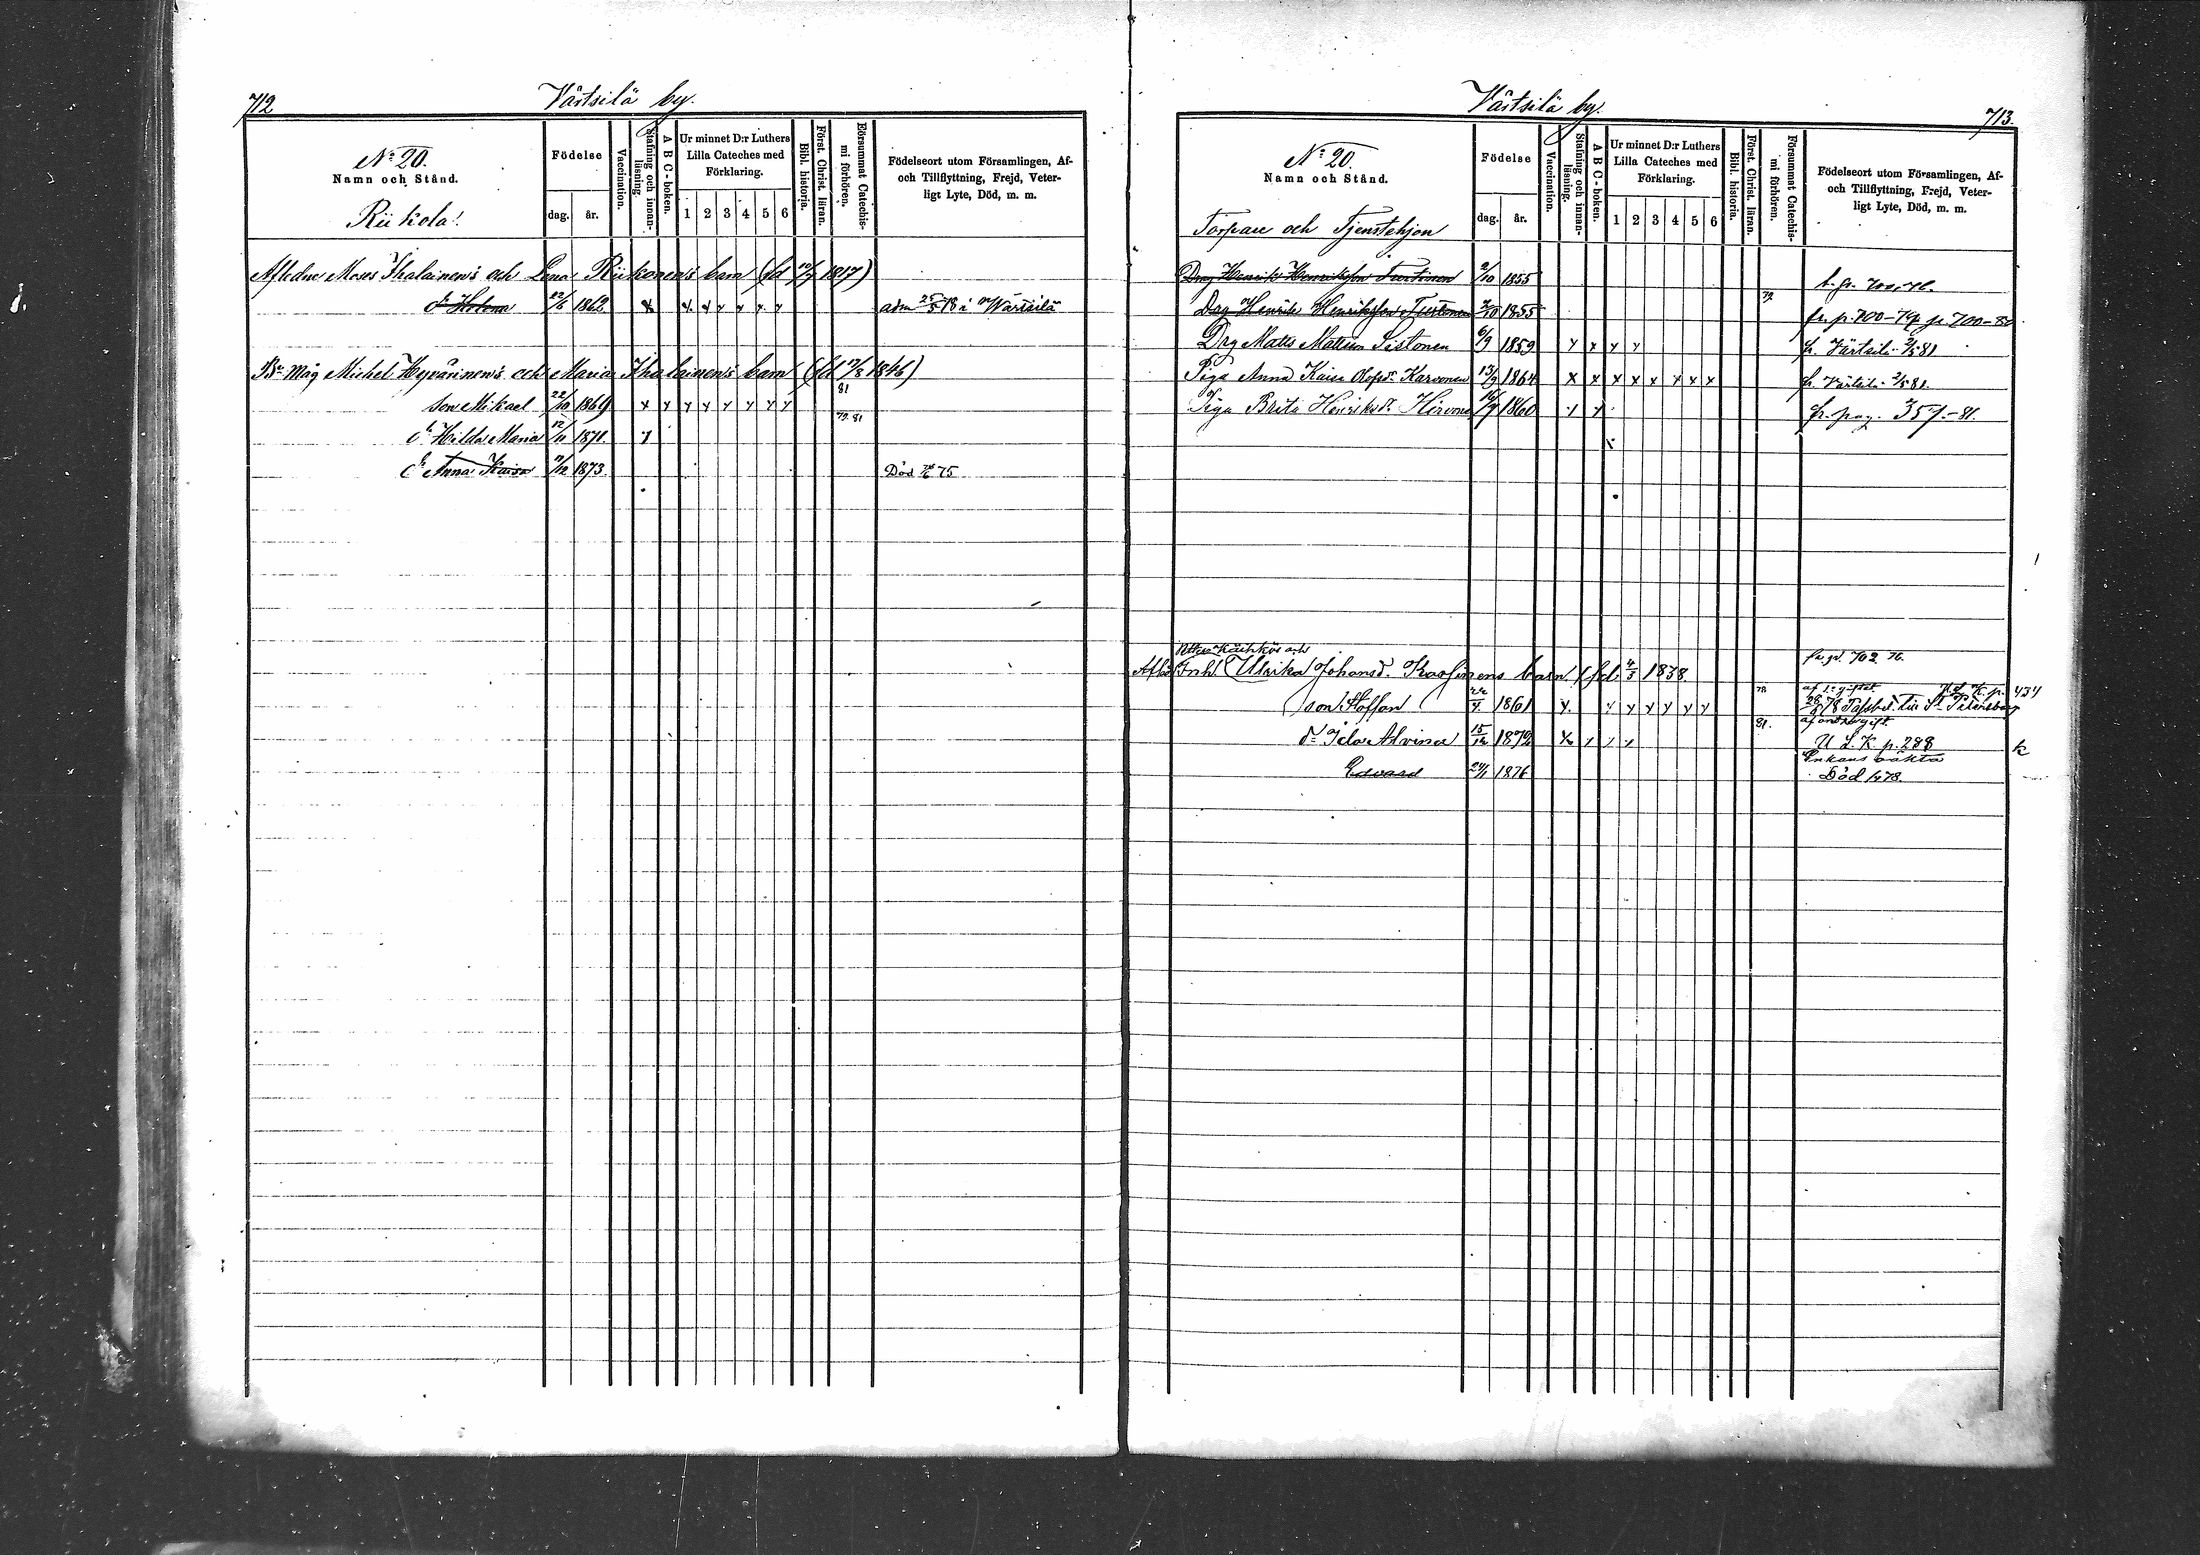 712
Värtsilä by.
Nº 20.
Namn och Stånd.
Riikola.
Födelse
dag.
år.
Vaccination.
Stafning och innanläsning.
A B C-boken.
Ur minnet D:r Luthers
Lilla Cateches med
Förklaring.
1 2 3 4 5 6
Bibl. historia.
Först. Christ. läran.
Försummat Catechismi förhören.
Födelseort utom Församlingen, Af-
och Tillflyttning, Frejd, Veter-
ligt Lyte, Död, m. m.
Afl. Moses Ihalainen's och Lena Riikonen's barn (fd 1817)
dr Helena 22/6 1862 x x x x x x x adm 25/5 78 i Wärtsilä
Be Måg Michel Hyvärinen's och Maria Ihalainen's barn (fd 17/8 1846)
81
Son Mikael 22/10 1869 x x x x x x x x
79. 81
dr Hilda Maria 12/11 1871. x
dr Anna Kaisa 11/12 1873. Död 75
Värtsilä by.
713.
Nº 20.
Namn och Stånd.
Torpare och Tjenstehjon
Födelse
dag.
år.
Vaccination.
Stafning och innanläsning.
A B C-boken.
Ur minnet D:r Luthers
Lilla Cateches med
Förklaring.
1 2 3 4 5 6
Bibl. historia.
Först. Christ. läran.
Försummat Catechismi förhören.
Födelseort utom Församlingen, Af-
och Tillflyttning, Frejd, Veter-
ligt Lyte, Död, m. m.
Drg Henrik Henriksson 2/10 1855
Drg Henrik Henriksson 2/10 1855 79 fr. p. 700-79 p. 700-80
Drg Matts Mattsson 6/9 1859 x x x x fr. Värtsilä 2/5 81
Piga Anna Kaisa Olofsdr Karvonen 13/9 1864 x x x x x x x x fr. Värtsilä 2/5 81.
Piga Brita Henriksdr Hirvonen 1860 x x fr. pag. 357.-81.
fr. pd. 702 76.
Inh. Ulrika Johansd. barn (fd. 4/3 1838
son Staffan 1861 x. x x x x x x 78 28/2 78 Passbd. till St Petersburg
434
dr Ida Alvina 15/12 1872 x x x x 81. U L. K. p. 288
Edvard 24/1 1876 Död 78.
k